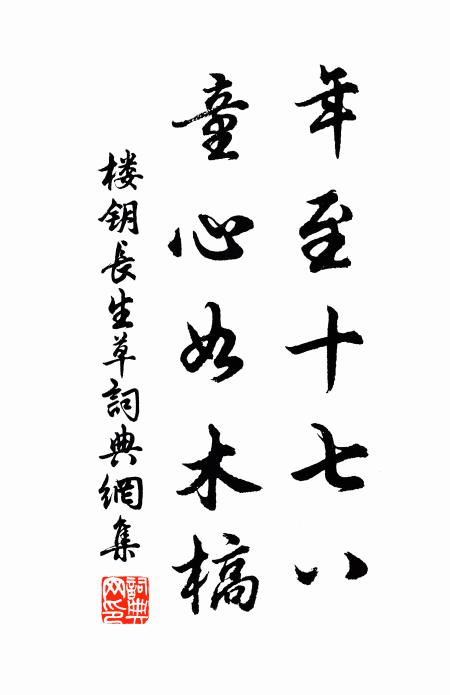 年至十七八
童心如木槁
楼钥長生草詞典網集
詞典网印